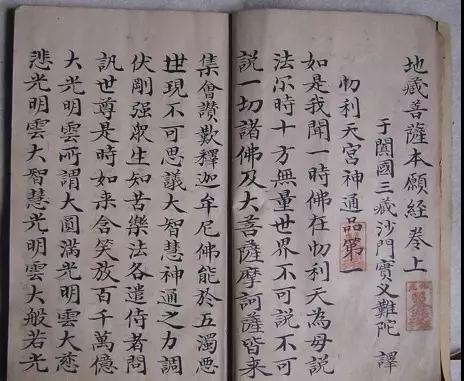 地藏菩薩本願經卷上
于闐國三藏沙門實叉難陀 譯
忉利天宮神通品第一
如是我聞一時佛在忉利天為母說
法尒時十方無量世界不可說不可
說一切諸佛及大菩薩摩訶薩皆来
集會讚歎釋迦牟尼佛能於五濁惡
世現不可思議大智慧神通之力調
伏剛强眾生知苦樂法各遣侍者問
訊世尊是時如来含笑放百千萬億
大光明雲所謂大圓滿光明雲大慈
悲光明雲大智慧光明雲大般若光